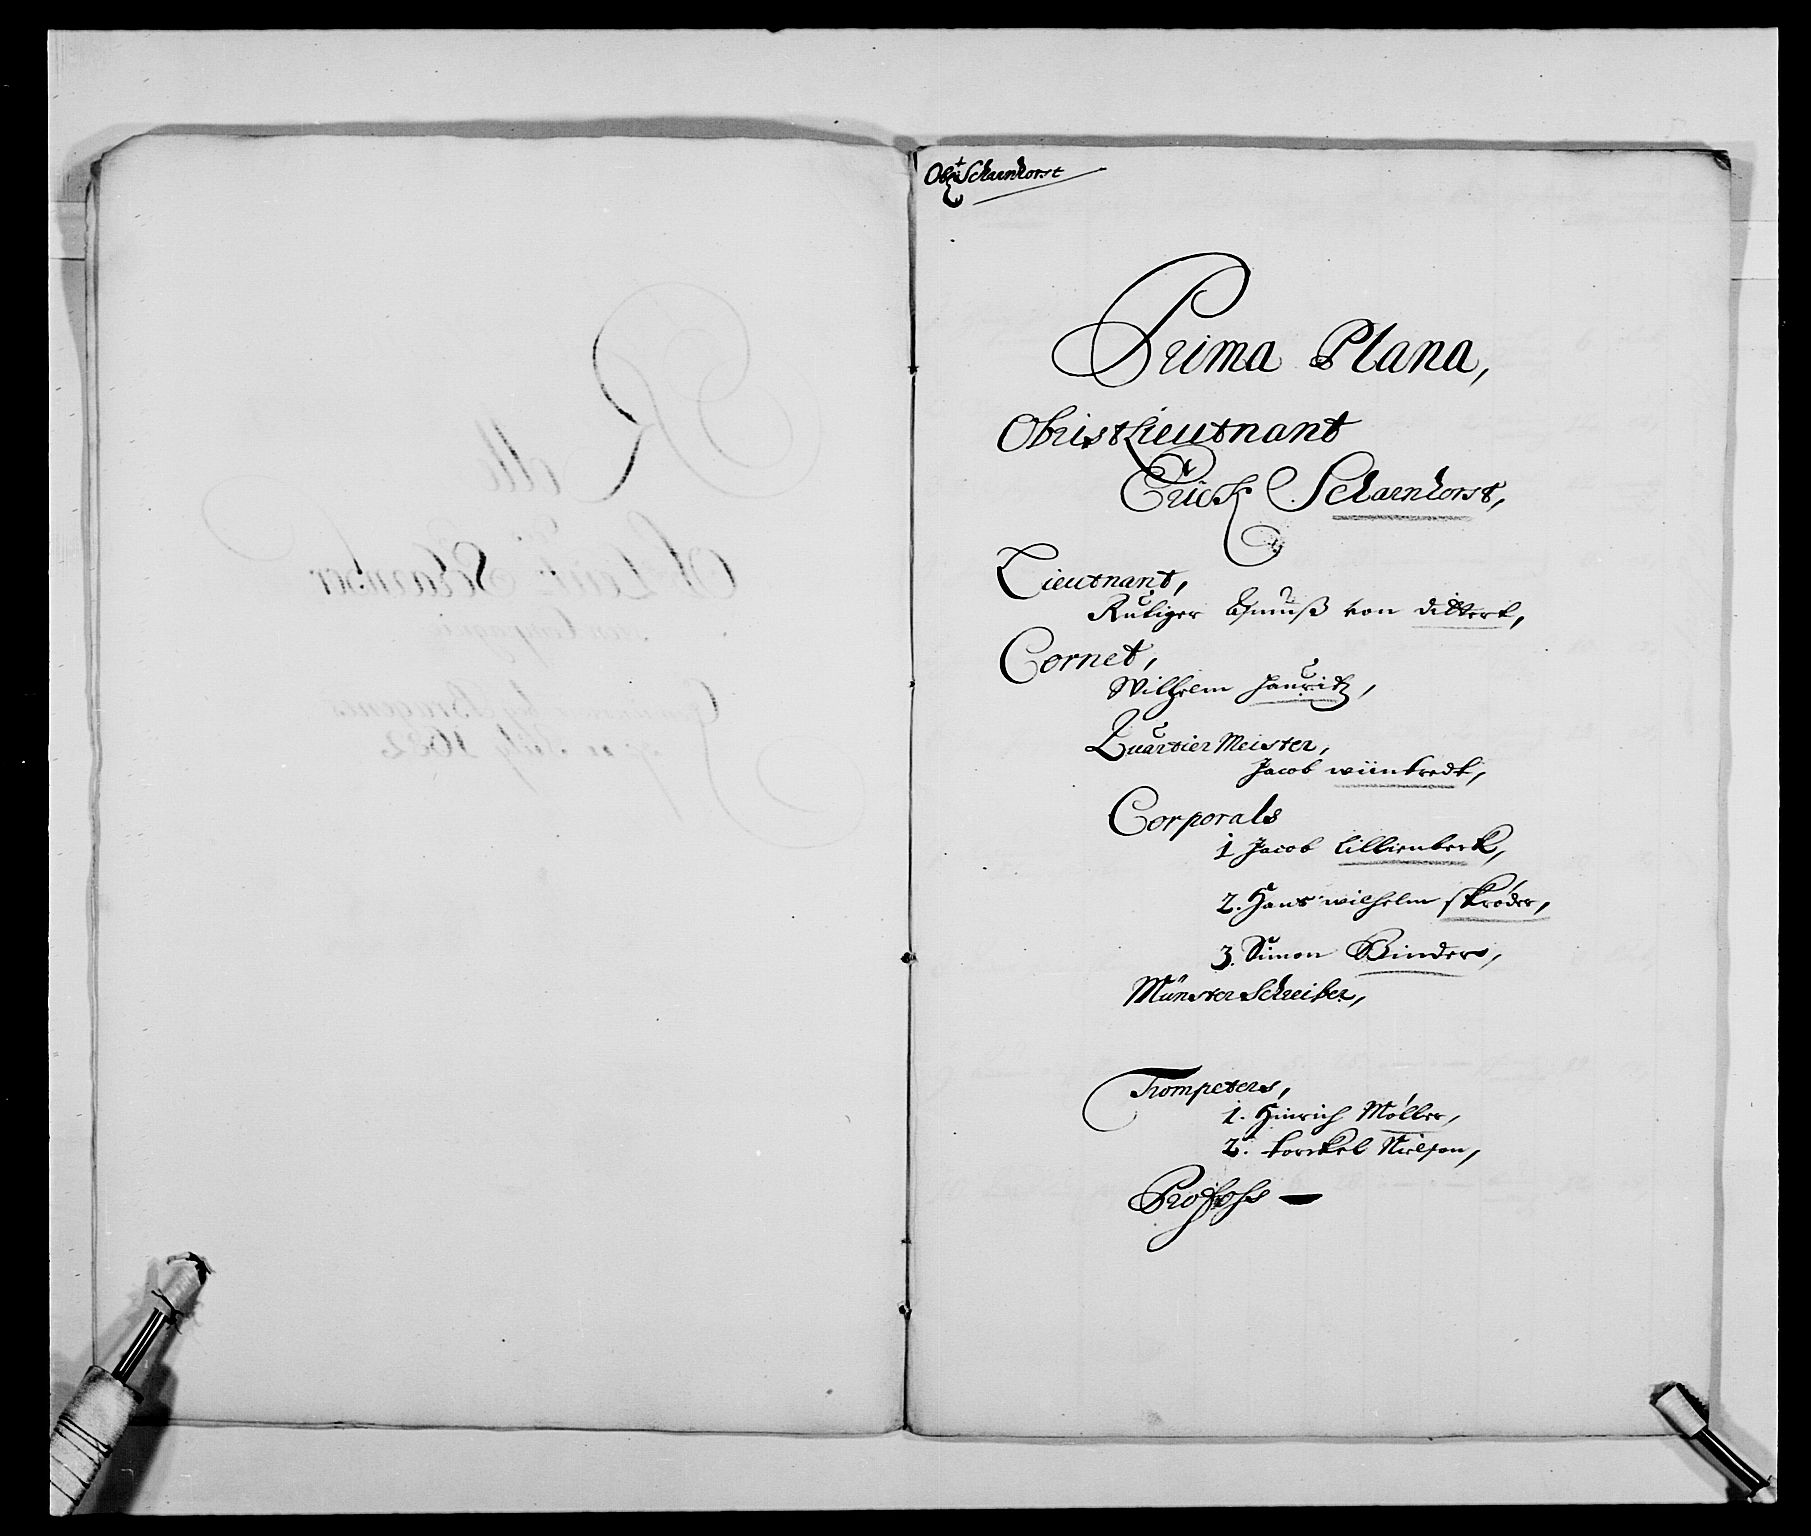 Obr: Scharnhorst
Prima Plana,
ObristLieutnant
Erick Scharnhorst,
Lieutnant,
Rutiger von dittert,
Cornet,
Wilhelm Jauritz,
Quartier Meister,
Jacob
Corporals
1 Jacob Lillienberk,
2. Hans wilhelm skrøder,
3. Simon Binders,
Münster Schreiber,
Trompeters,
1. Hinrich Møller,
2. torckel Nielson,
Profohs —